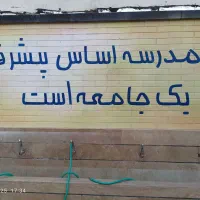 مدرسه اساس پیشرف
یک جامعه است
17:14